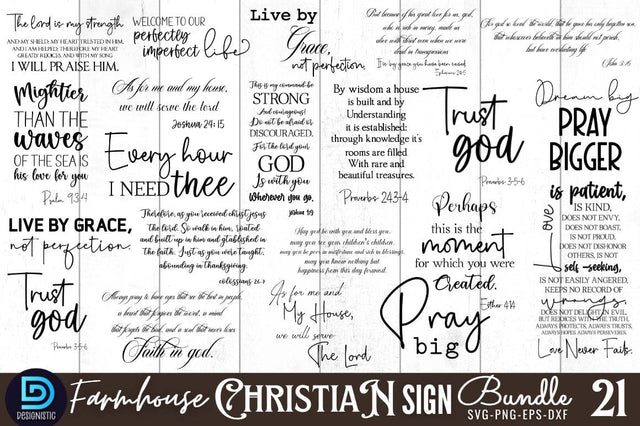 The lord is my strength
AND MY SHIELD, MY HEART TRUSTED IN HIM,
AND I AM HELPED: THEREFORE MY HEART
GREATLY REJOICES, AND WITH MY SONG
I WILL PRAISE HIM.
WELCOME TO OUR
perfectly
imperfect life
Live by
Grace,
not perfection.
But because of his great love for us, god,
who is rich in mercy, made us
alive with christ even when we were
dead in transgressions
It's by grace you have been saved.
Ephesians 2:4-5
For god so loved the world, that he gave his only begotten son,
that whosoever believeth in him should not perish,
but have everlasting life
John 3:16
Mightier
THAN THE
waves
OF THE SEA IS
his love for you
Psalm 93:4
As for me and my house,
we will serve the lord
Joshua 24:15
Every hour
I NEED thee
This is my command be
STRONG
And courageous!
Do not be afraid or
DISCOURAGED.
For the lord your
GOD
Is with you
Wherever you go.
Joshua 1:9
By wisdom a house
is built and by
Understanding
it is established:
through knowledge it's
rooms are filled
With rare and
beautiful treasures.
Proverbs 24:3-4
Trust
god
Proverbs 3:5-6
Dream big
PRAY
BIGGER
LIVE BY GRACE,
not perfection.
Therefore, as you received christ jesus
the lord. So walk in him, rooted
and built up in him and established in
the faith. Just as you were taught,
abounding in thanksgiving.
colossians 2:6-7
May god be with you and bless you,
may you see your children's children,
may you be poor in misfortune and rich in blessings,
may you know nothing but
happiness from this day forward.
Perhaps
this is the
moment
for which you were
Created.
Esther 4:14
Love
is patient,
IS KIND,
DOES NOT ENVY,
DOES NOT BOAST,
IS NOT PROUD,
DOES NOT DISHONOR
OTHERS, IS NOT
self -seeking,
IS NOT EASILY ANGERED,
KEEPS NO RECORD OF
wrongs,
DOES NOT DELIGHT IN EVIL,
BUT REJOICES WITH THE TRUTH,
ALWAYS PROTECTS, ALWAYS TRUSTS,
ALWAYS HOPES, ALWAYS PERSEVERES.
Love Never Fails.
Trust
god
Proverbs 3:5-6
Always pray to have eyes that see the best in people,
a heart that forgives the worst, a mind
that forgets the bad, and a soul that never loses
Faith in god.
As for me and
My House,
we will serve
The Lord
Pray
big
DESIGNISTIC
Farmhouse CHRISTIAN SIGN Bundle 21
SVG-PNG-EPS-DXF